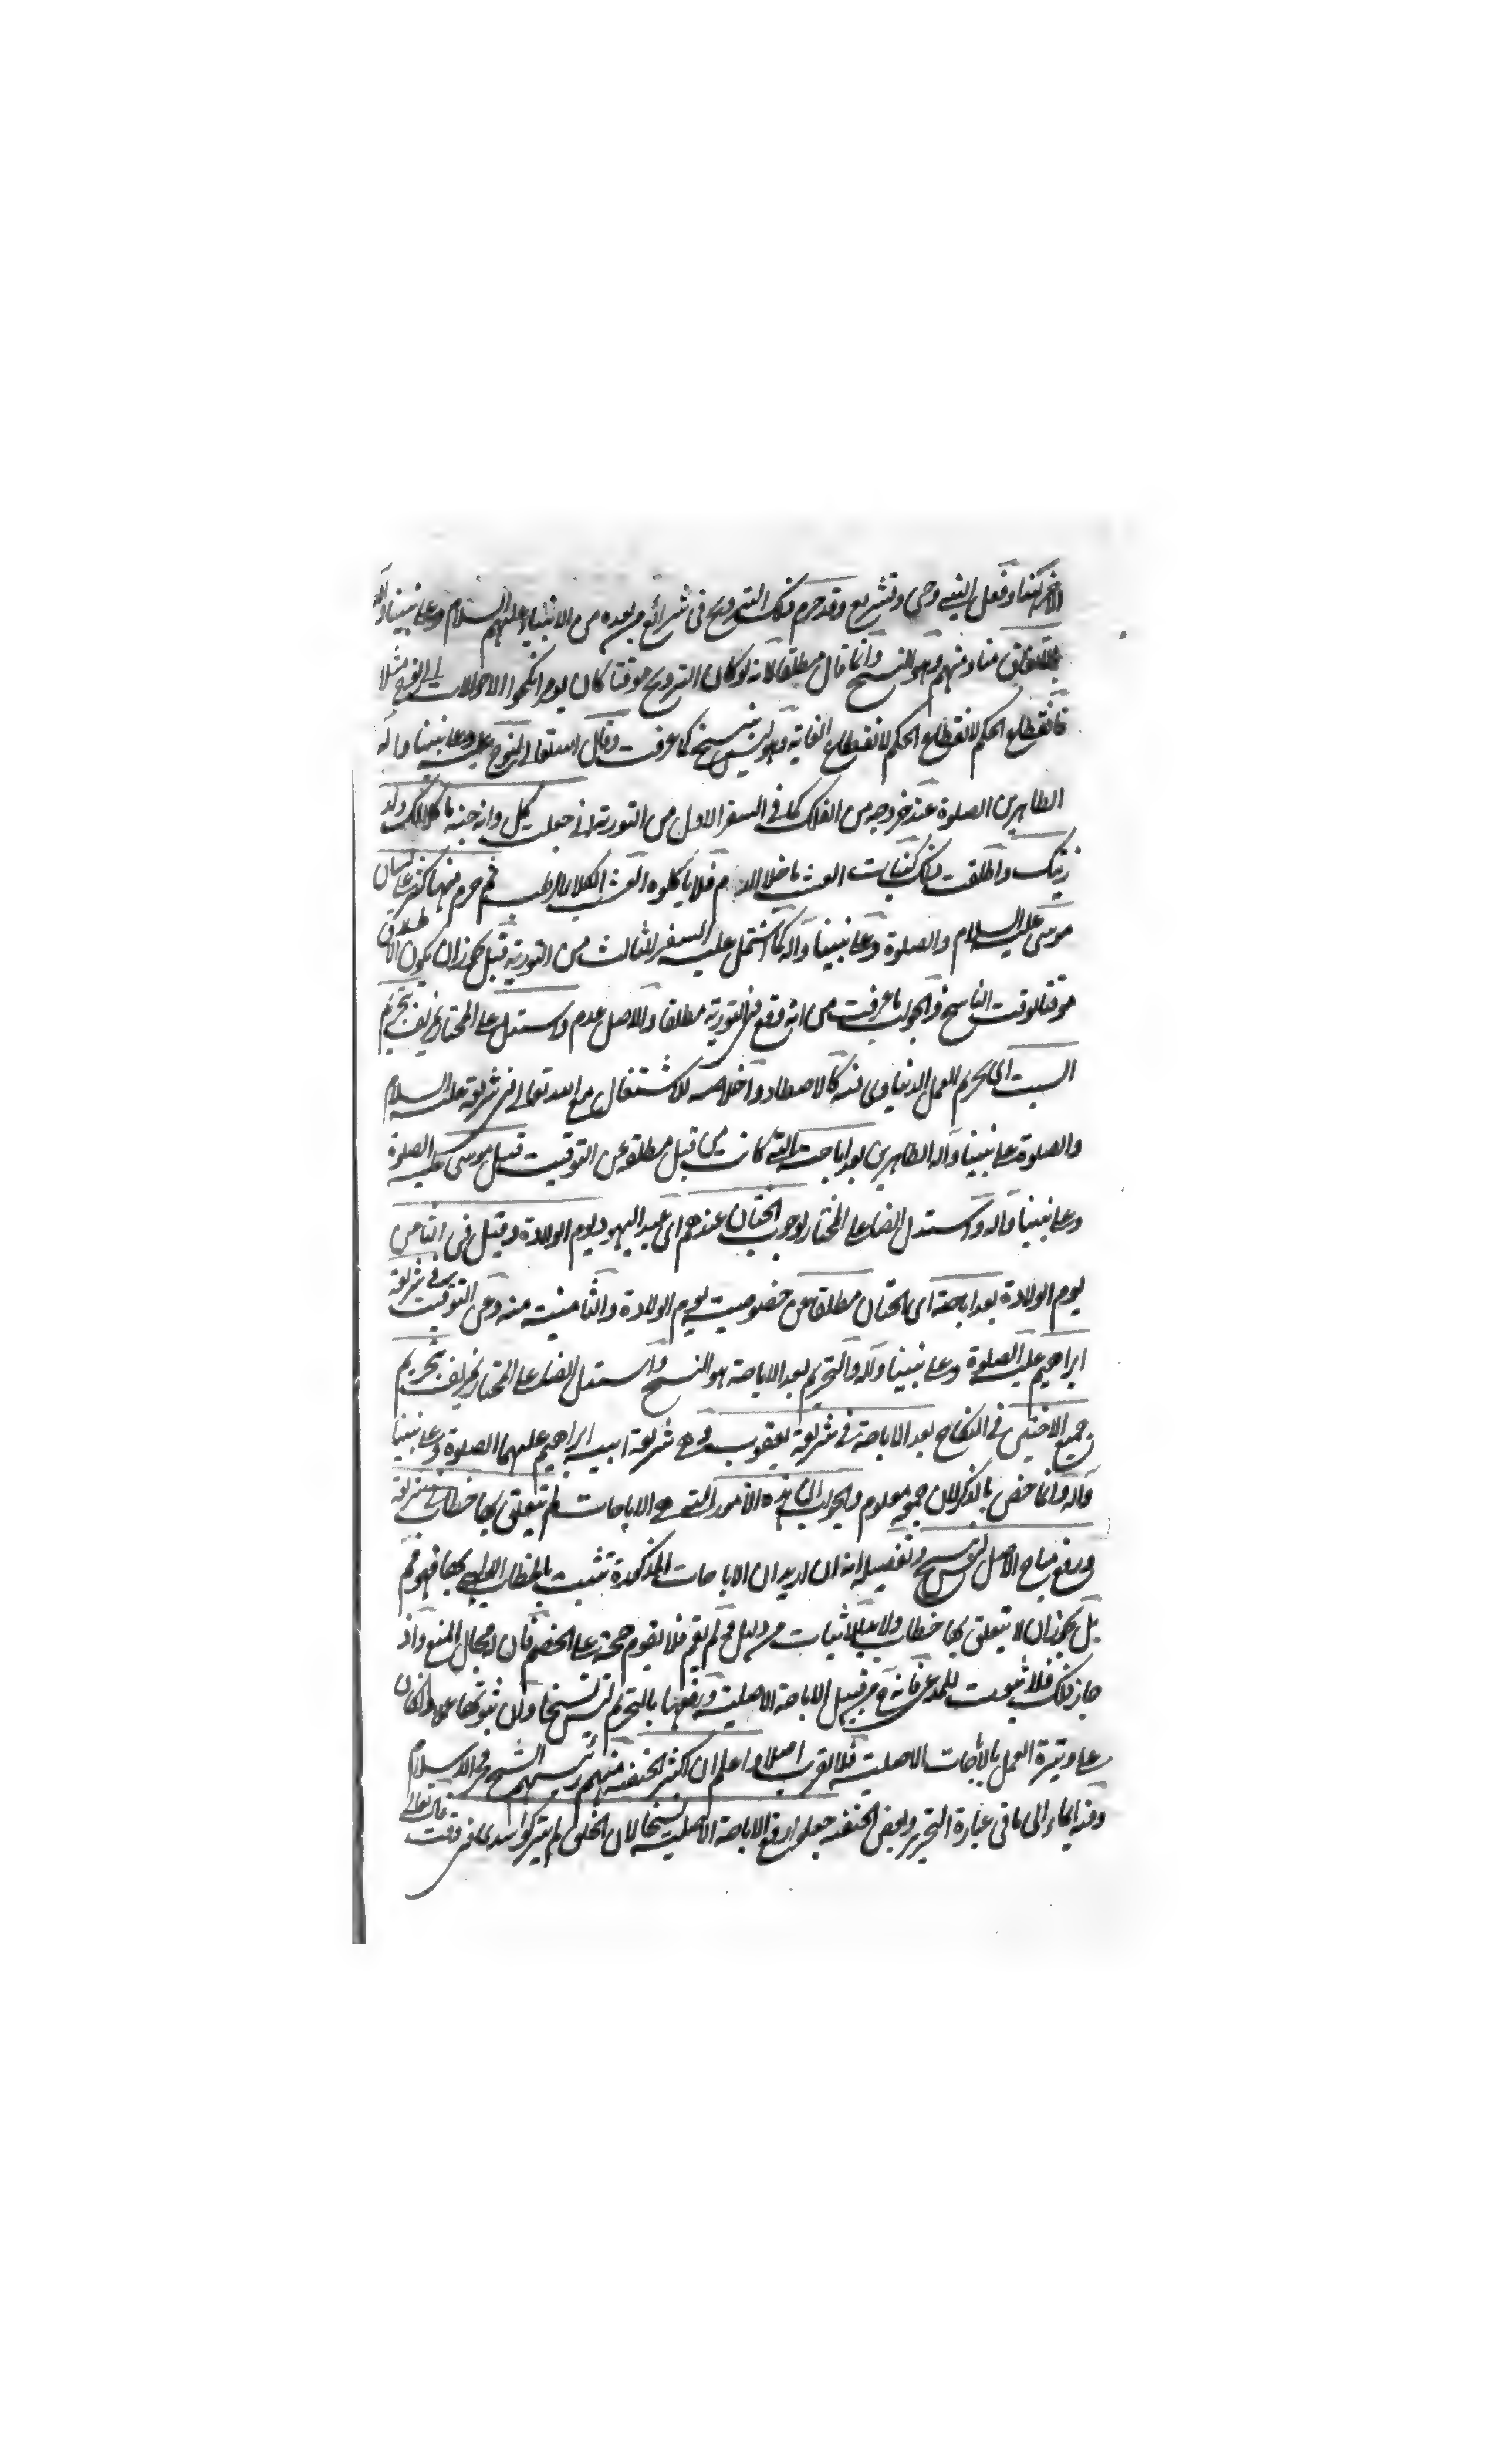 الآخر كنا وفعل النبي وحي وتشريع وقد حرم ذلك التزويج في شرائع من بعده من الانبياء عليهم السلام وعلى نبينا وآله
بالاتفاق منا ومنهم وهو النسخ وانما قال مطلقا لانه لو كان التزويج موقتا كان يوم انكحوا الاخوات الى الوقت مثلا
فانقطاع الحكم لانقطاع الحكم لانقطاع الغاية وهو ليس بنسخ كما عرفت وقال الله تعالى لنوح عليه وعلى نبينا وآله
الطاهرين الصلوة عند خروجه من الفلك كما في السفر الاول من التورية اني جعلت كل دابة حية ماكلا لك ولذ
ريتك واطلقت ذلك كنبات العشب ما خلا الدم فلا تأكلوه العشب الكلاء الرطب ثم حرم منها كثير على لسان
موسى عليه السلام والصلوة وعلى نبينا وآله كما اشتمل عليه السفر الثالث من التورية قيل يجوز ان يكون الاطلاق
موقتا لوقت الناسخ والجواب ما عرفت من انه وقع في التورية مطلقا والاصل عدم واستدل على المختار بتحريم
السبت اي تحريم العمل الدنياوي فيه كالاصطياد واخلاصه للاشتغال مع الله تعالى في شريعته عليه السلام
والصلوة على نبينا وآله الطاهرين بعد اباحته التي كانت من قبل مطلقة عن التوقيت قبل موسى عليه الصلوة
وعلى نبينا وآله واستدل ايضا على المختار بوجوب الختان عندهم اي عند اليهود يوم الولادة وقيل في الثامن
يوم الولادة بعد اباحته اي الختان مطلقا عن خصوصية يوم الولادة والثامنية منه وعن التوقيت في شريعة
ابراهيم عليه الصلوة وعلى نبينا وآله والتحريم بعد الاباحة هو النسخ واستدل ايضا على المختار بتحريم
جميع الاختين في النكاح بعد الاباحة في شريعة يعقوب وهي شريعة ابيه ابراهيم عليهما الصلوة وعلى نبينا
وآله وانما خص بالذكر لان جمعه معلوم والجواب ان هذه الامور التي هي الاباحات لم يتعلق بها خطاب في شريعة
ورفع مباح الاصل ليس بنسخ وتفصيله انه ان اريد ان الاباحات المذكورة تثبت بالخطاب الالهي بها فهو ثم
بل يجوز ان لا يتعلق بها خطاب ولا بد للاثبات من دليل ولم يقم فلا يقوم حجة على الخصم فان له مجال المنع واذ
جاز ذلك فلا ثبوت للمدعى فانه ح من قبيل الاباحة الاصلية ورفعها بالتحريم ليس نسخا وان ثبوتها عملا وان كان
على وتيرة العمل بالاباحات الاصلية فلا تقرب اصلا واعلم ان اكثر الحنفية منهم رئيسهم الشيخ فخر الاسلام
وفيه ايماء الى ما في عبارة التحرير وبعض الحنفية جعلوا رفع الاباحة الاصلية نسخا لان الخلق لم يتركوا سدى في وقت قال تعالى